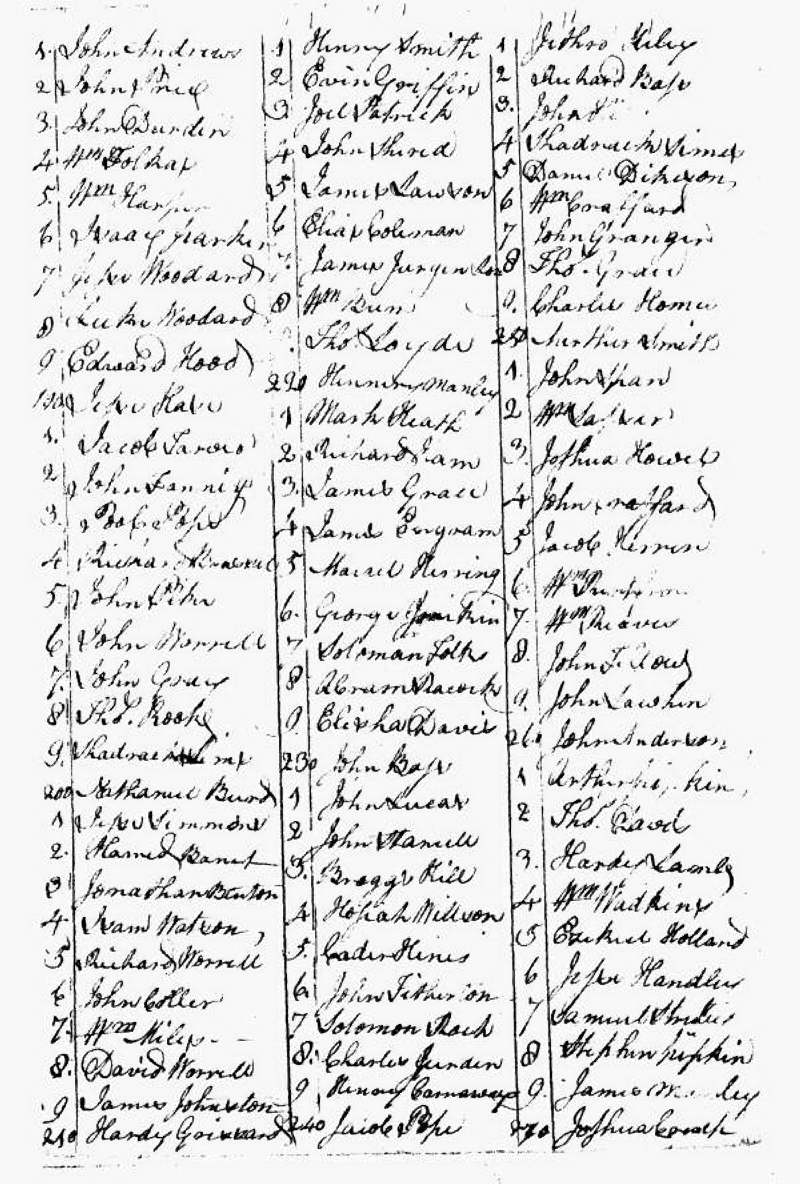 1. John Andrews
2 John Price
3. John Burden
4 Wm Folkas
5. Wm Harper
6 Isaac Parker
7 Jesse Woodard
8 Luke Woodard
9 Edward Hood
190 Jesse
1. Jacob
2 John Fannig
3. Poole Pope
4 Richard Braswell
5. John Pitts
6 John Worrell
7. John Gray
8 Tho. Rooks
9. Shadrack Sims
200 Nathaniel Bund
1 Jesse Simmons
2. Hamed
3 Jonathan Benton
4. Ivam Watson,
5 Richard Worrell
6 John Coller
7. Wm Miles
8. David Worrell
9 James Johnston
210 Hardy Grizzard
1 Henry Smith
2 Evin Griffin
3 Joel Patrick
4 John Shered
5 James Lawson
6 Elias Coleman
7. James Jurgenson
8 Wm Bun
9. Tho. Loyde
220 Hennery Manley
1 Mark Heath
2 Richard
3. James Grace
4 James Evgram
5 Herring
6. George Jenkin
7 Soloman Folks
8 Abram Peacock
9. Elisha Davis
230 John Bass
1 John Lucas
2 John Stancell
3. Braggs Hill
4 Hosiah Willson
5. Cader Hines
6. John Fitherson
7 Solomon Roch
8. Charles Jurden
9 Henery Carnaways
240 Jacob Pope
1 Jethro Kiley
2 Richard Bass
3. John
4 Shadrack Simes
5 Daniel Dikeson,
6 Wm Craffard
7 John Granger
8 Tho. Grace
9. Charles Homes
250 Aurthur Smith
1. John Span
2 Wm
3. Joshua Howel
4 John Craffard
5 Jacob Herren
6. Wm
7. Wm Reaves
8. John
9. John Lawhon
260 John Anderson
1 Arthur Pipkin,
2 Tho. Davis
3. Hardy Lamb
4 Wm Wadkins
5 Ezekiel Holland
6 Jesse Handley
7 Samuel
8 Stephen Pipkin
9. James
270 Joshua